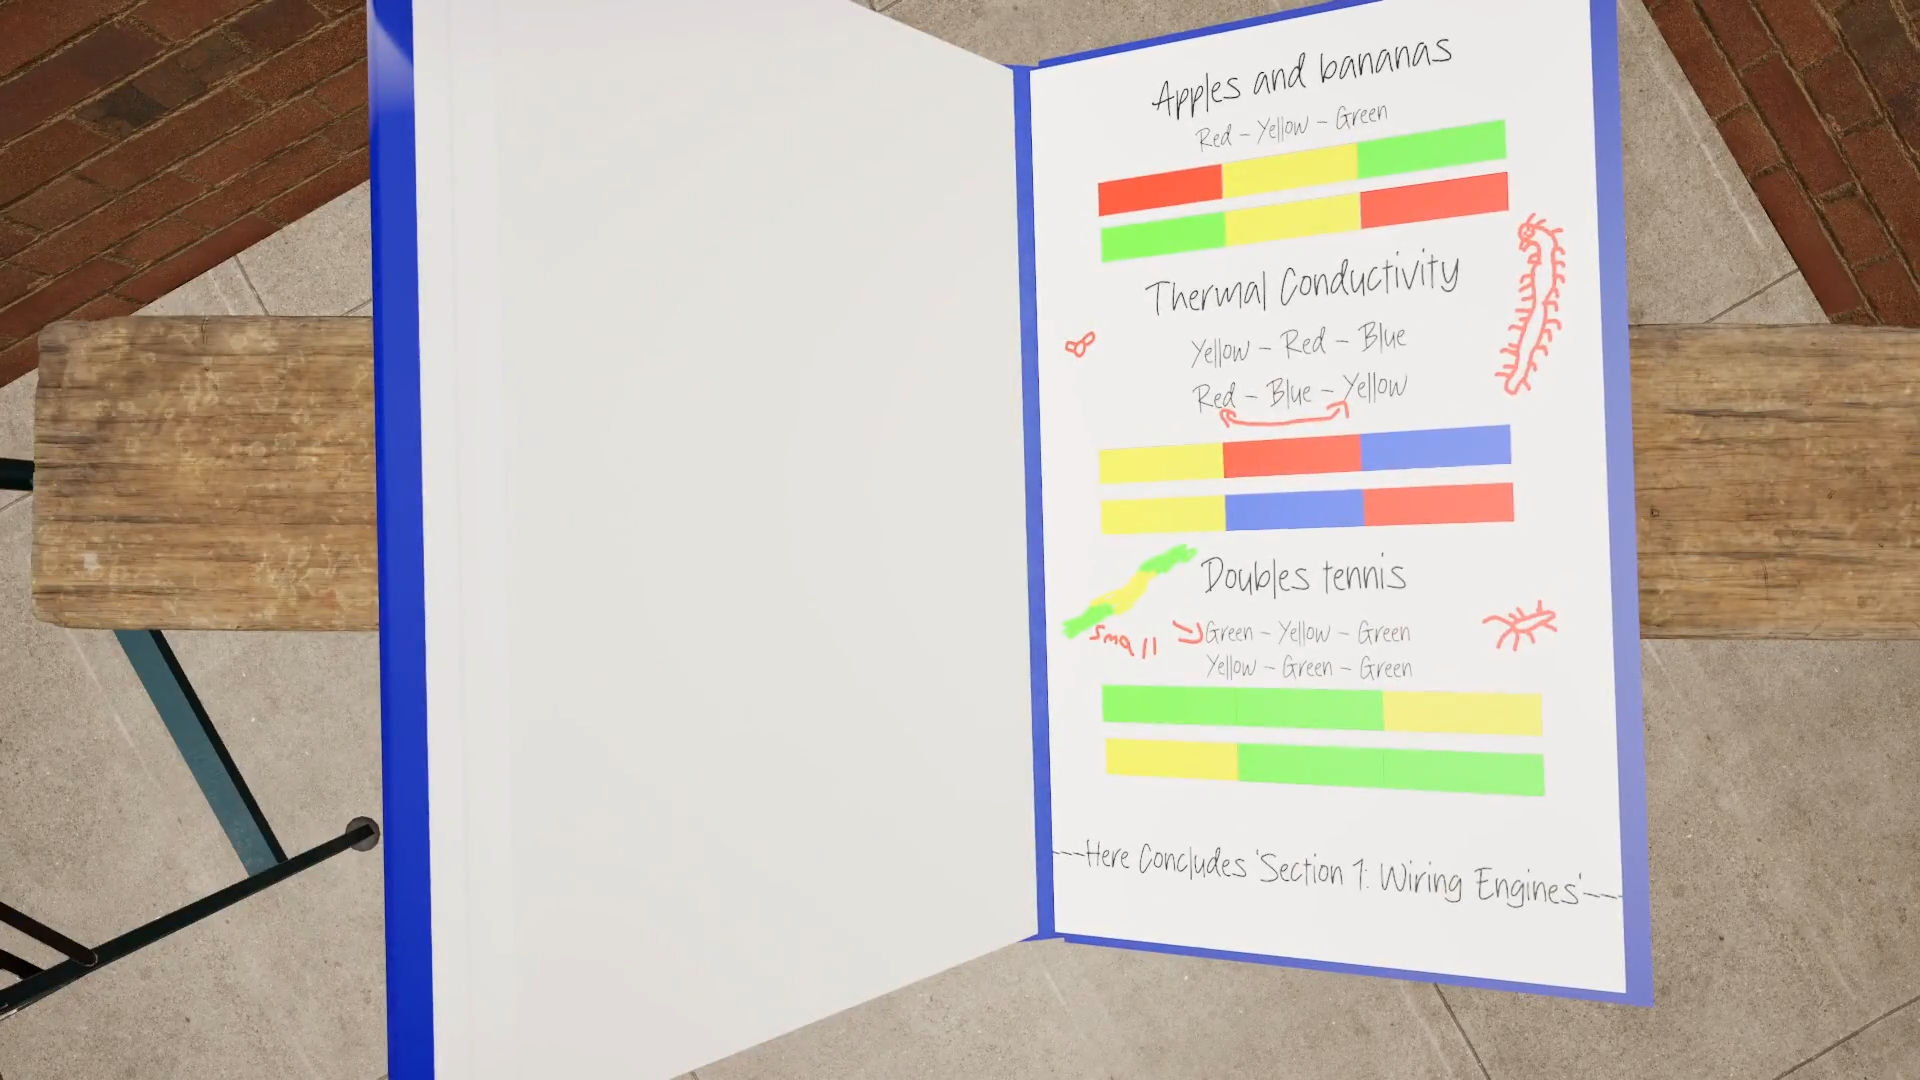 Apples and bananas
Red - Yellow - Green
Thermal Conductivity
Yellow - Red - Blue
Red - Blue - Yellow
Doubles tennis
small
Green - Yellow - Green
Yellow - Green - Green
---Here Concludes 'Section 1: Wiring Engines'---